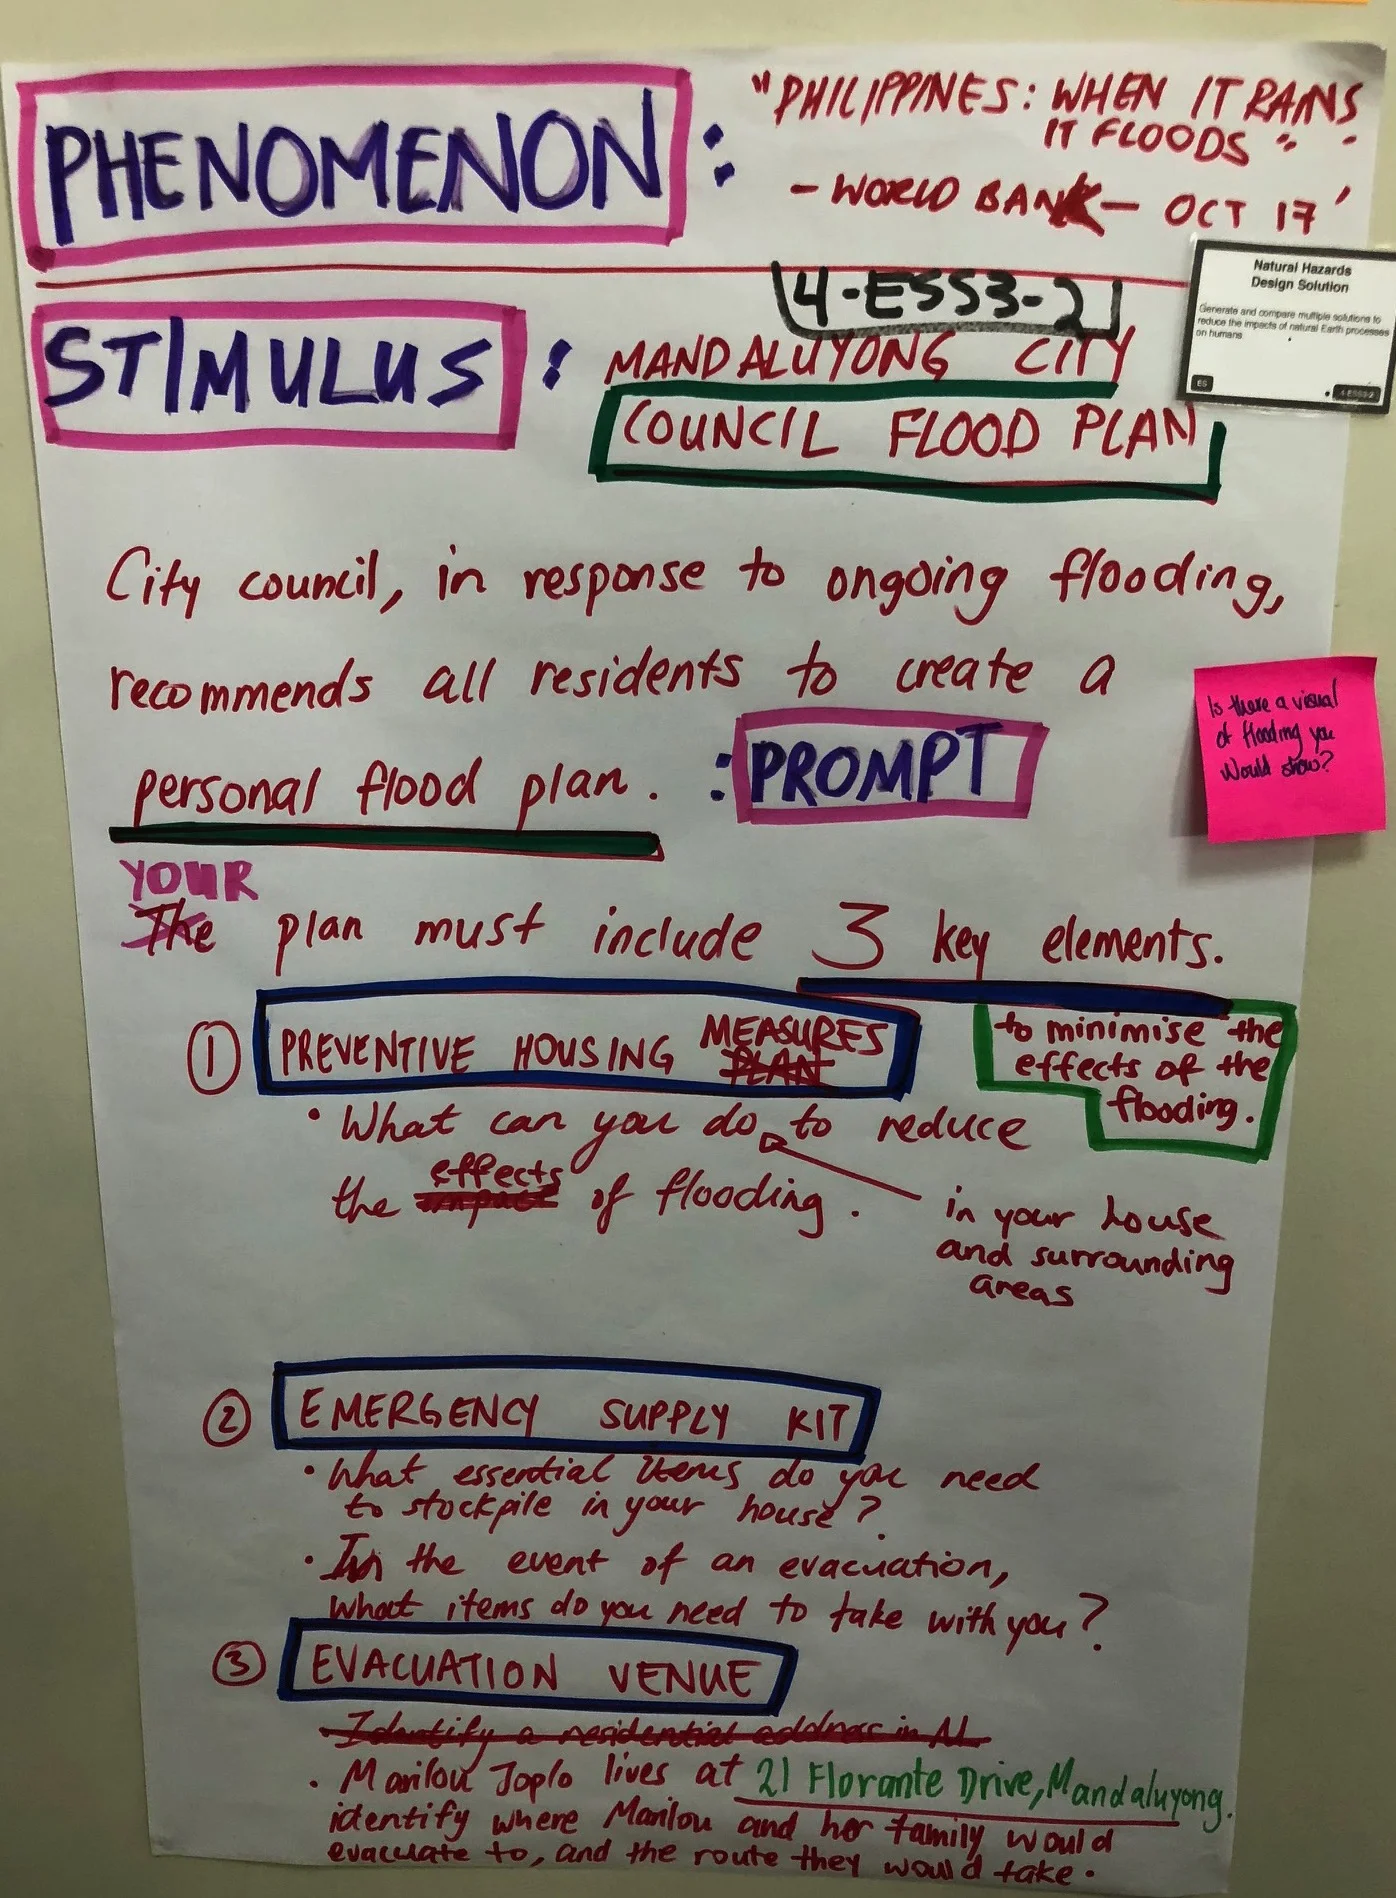 PHENOMENON :
"PHILIPPINES: WHEN IT RAINS
IT FLOODS"
- WORLD BANK - OCT 17'
4-ESS3-2
Natural Hazards
Design Solution
Generate and compare multiple solutions to
reduce the impacts of natural Earth processes
on humans
ES
4-ESS3-2
STIMULUS :
MANDALUYONG CITY
COUNCIL FLOOD PLAN
City council, in response to ongoing flooding,
recommends all residents to create a
personal flood plan. : PROMPT
Is there a visual
of flooding you
would show?
YOUR
The plan must include 3 key elements.
to minimise the
effects of the
flooding.
① PREVENTIVE HOUSING MEASURES
PLAN
• What can you do to reduce
effects
the impact of flooding.
in your house
and surrounding
areas
② EMERGENCY SUPPLY KIT
• What essential items do you need
to stockpile in your house?
• In the event of an evacuation,
what items do you need to take with you?
③ EVACUATION VENUE
Identify a residential address in M
• Marilou Joplo lives at 21 Florante Drive, Mandaluyong.
identify where Marilou and her family would
evacuate to, and the route they would take.